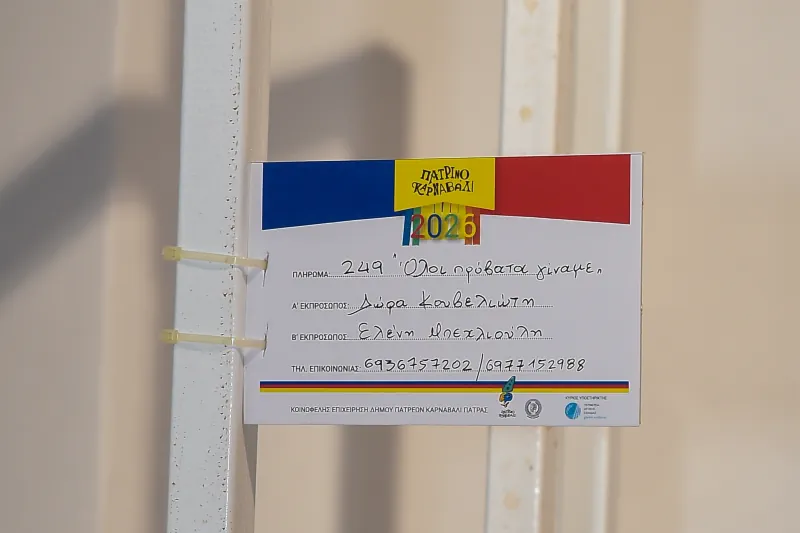 ΠΑΤΡΙΝΟ
ΚΑΡΝΑΒΑΛΙ
2026
ΠΛΗΡΩΜΑ: 249 "Όλοι πρόβατα γίναμε"
Α' ΕΚΠΡΟΣΩΠΟΣ: Δώρα Κουβελιώτη
Β' ΕΚΠΡΟΣΩΠΟΣ: Ελένη Μπεχλιούλη
ΤΗΛ. ΕΠΙΚΟΙΝΩΝΙΑΣ: 6936757202/6977152988
ΚΟΙΝΩΦΕΛΗΣ ΕΠΙΧΕΙΡΗΣΗ ΔΗΜΟΥ ΠΑΤΡΕΩΝ ΚΑΡΝΑΒΑΛΙ ΠΑΤΡΑΣ